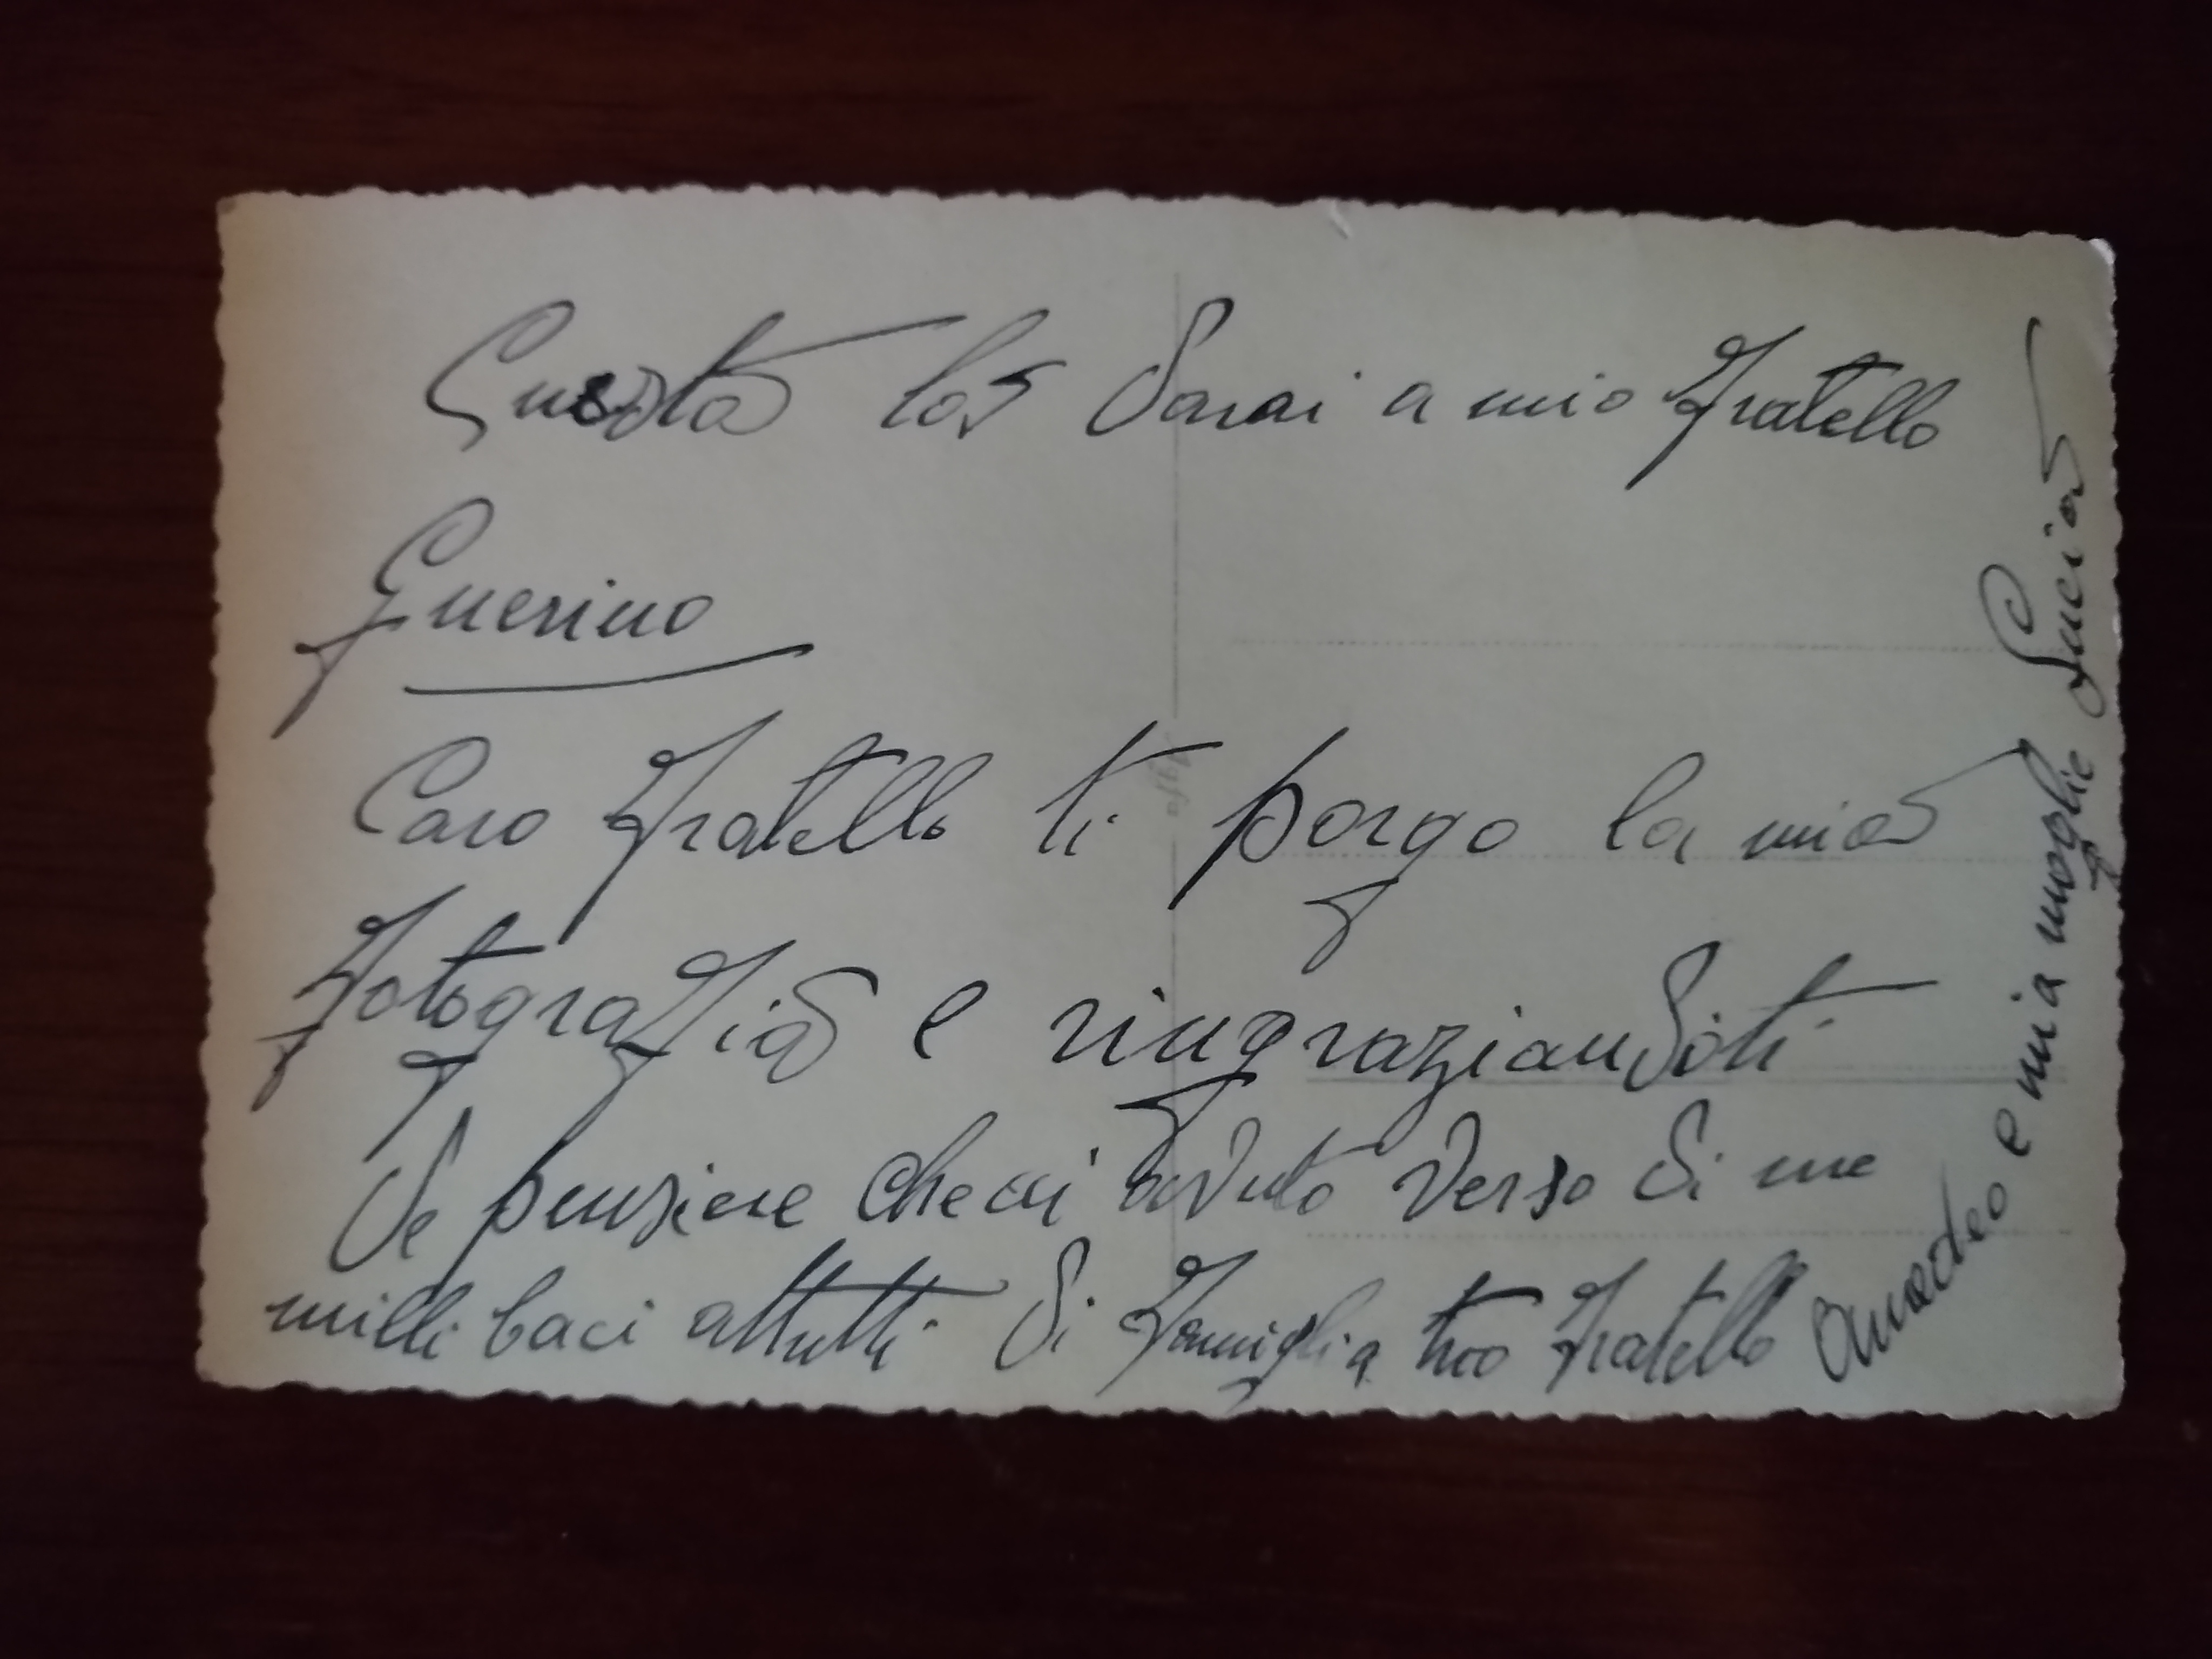 Questa la darai a mio fratello
Guerino
Caro fratello ti porgo la mia
fotografia e ringraziandoti
de penziere che ai avuto verso di me
milli baci attutti di famiglia tuo fratello
Amedeo e mia moglie Lucia
Agfa